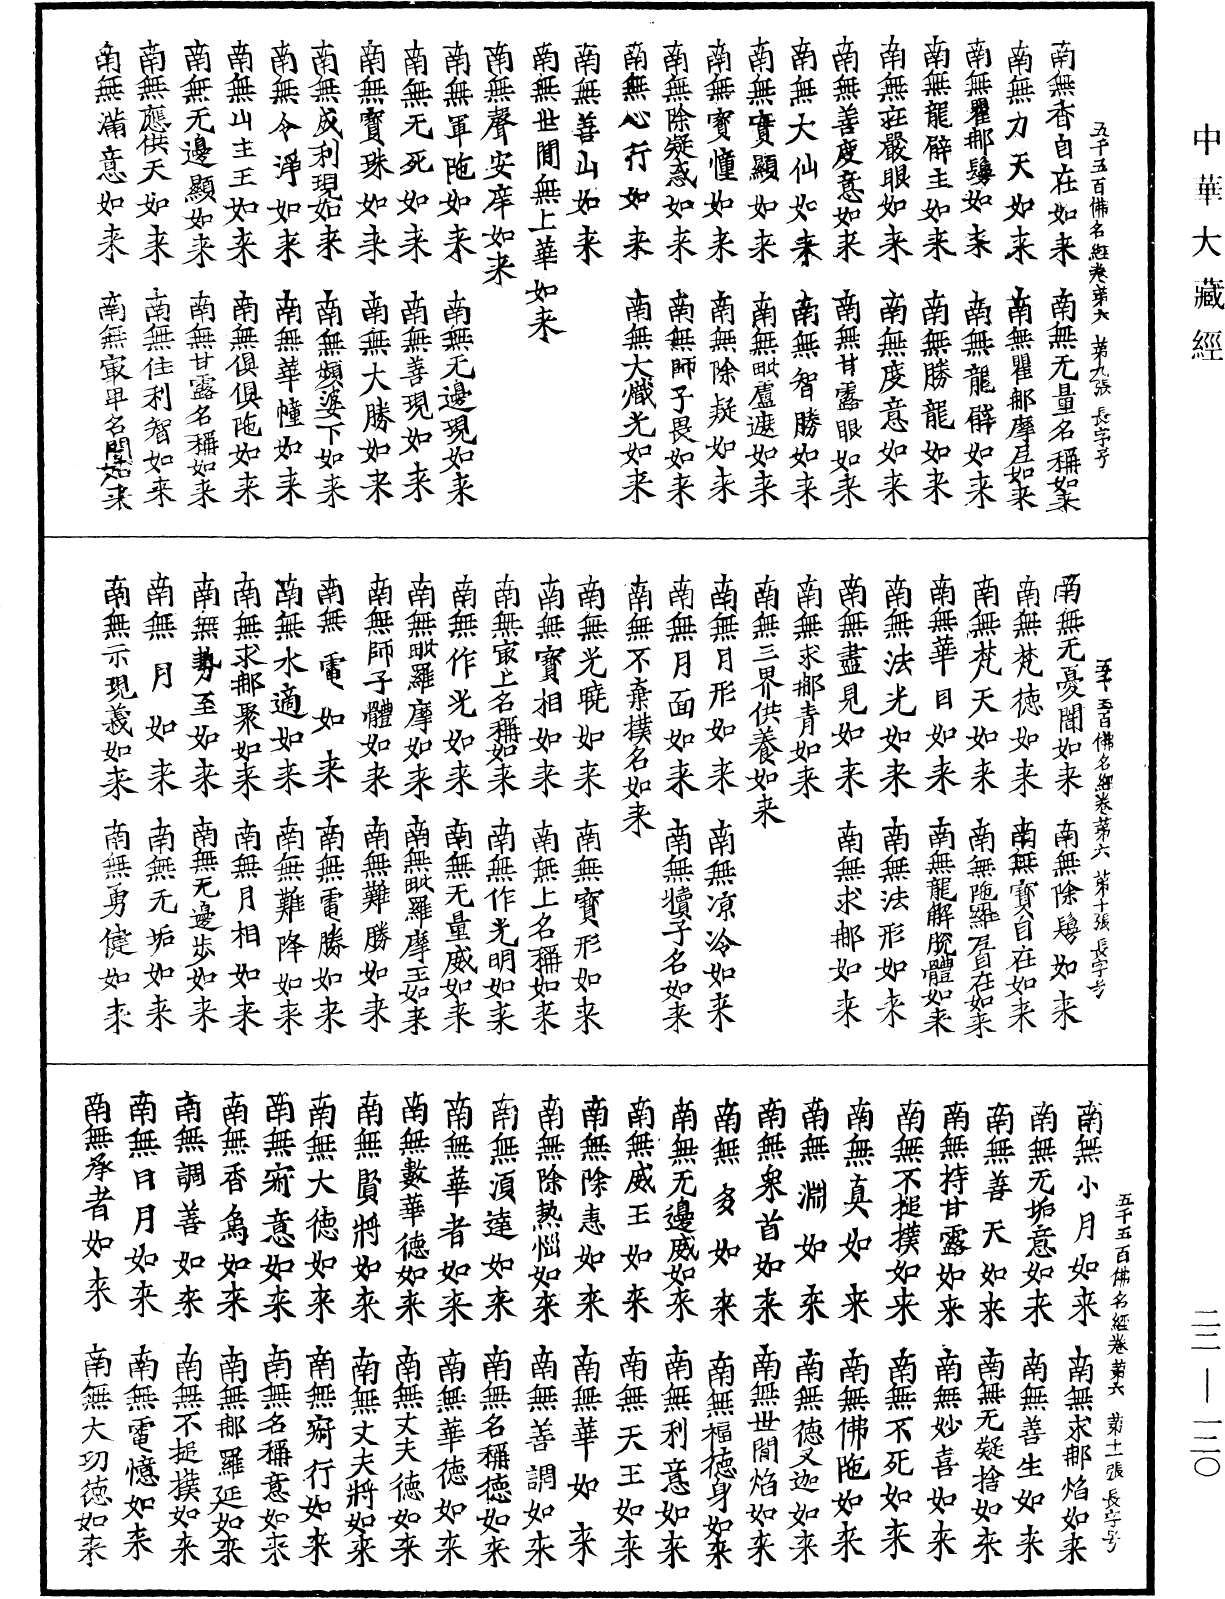 中華大藏經
五千五百佛名經卷第六　第九張　長字号
南無香自在如来　南無无量名稱如来
南無力天如来　南無瞿那摩尼如来
南無瞿那鬘如来　南無龍臂如来
南無龍臂主如来　南無勝龍如来
南無莊嚴眼如来　南無度意如来
南無善度意如来　南無甘露眼如来
南無大仙如来　南無智勝如来
南無實顯如来　南無毗盧遮如来
南無寶幢如来　南無除疑如来
南無除疑惑如来　南無師子畏如来
南無心行如来　南無大熾光如来
南無善山如来
南無世間無上華如来
南無聲安庠如来
南無軍陁如来　南無无邊現如来
南無无死如来　南無善現如来
南無寶珠如来　南無大勝如来
南無成利現如来　南無頻婆下如来
南無令淨如来　南無華幢如来
南無山主王如来　南無俱俱陁如来
南無无邊顯如来　南無甘露名稱如来
南無應供天如来　南無住利智如来
南無滿意如来　南無㝡甲名聞如来
五千五百佛名經卷第六　第十張　長字号
南無无憂闇如来　南無除鬘如来
南無梵德如来　南無寶自在如来
南無梵天如来　南無陁羅尼自在如来
南無華目如来　南無龍解脫體如来
南無法光如来　南無法形如来
南無盡見如来　南無求那如来
南無求那青如来
南無三界供養如来
南無日形如来　南無凉冷如来
南無月面如来　南無犢子名如来
南無不棄撲名如来
南無光曉如来　南無寶形如来
南無寶相如来　南無上名稱如来
南無㝡上名稱如来　南無作光明如来
南無作光如来　南無无量威如来
南無毗羅摩如来　南無毗羅摩王如来
南無師子體如来　南無難勝如来
南無電如来　南無電勝如来
南無水適如来　南無難降如来
南無求那聚如来　南無月相如来
南無勢至如来　南無无邊步如来
南無月如来　南無无垢如来
南無示現義如来　南無勇健如来
五千五百佛名經卷第六　第十一張　長字号
南無小月如来　南無求那焰如来
南無无垢意如来　南無善生如来
南無善天如来　南無无疑捨如来
南無持甘露如来　南無妙喜如来
南無不搥撲如来　南無不死如来
南無真如来　南無佛陁如来
南無淵如来　南無德叉迦如来
南無衆首如来　南無世間焰如来
南無多如来　南無福德身如来
南無无邊威如来　南無利意如来
南無威王如来　南無天王如来
南無除恚如来　南無華如来
南無除熱惱如来　南無善調如来
南無湏達如来　南無名稱德如来
南無華者如来　南無華德如来
南無數華德如来　南無丈夫德如来
南無賢將如来　南無丈夫將如来
南無大德如来　南無㝛行如来
南無㝛意如来　南無名稱意如来
南無香烏如来　南無那羅延如来
南無調善如来　南無不搥撲如来
南無日月如来　南無電憶如来
南無承者如来　南無大功德如来
二二—一二〇